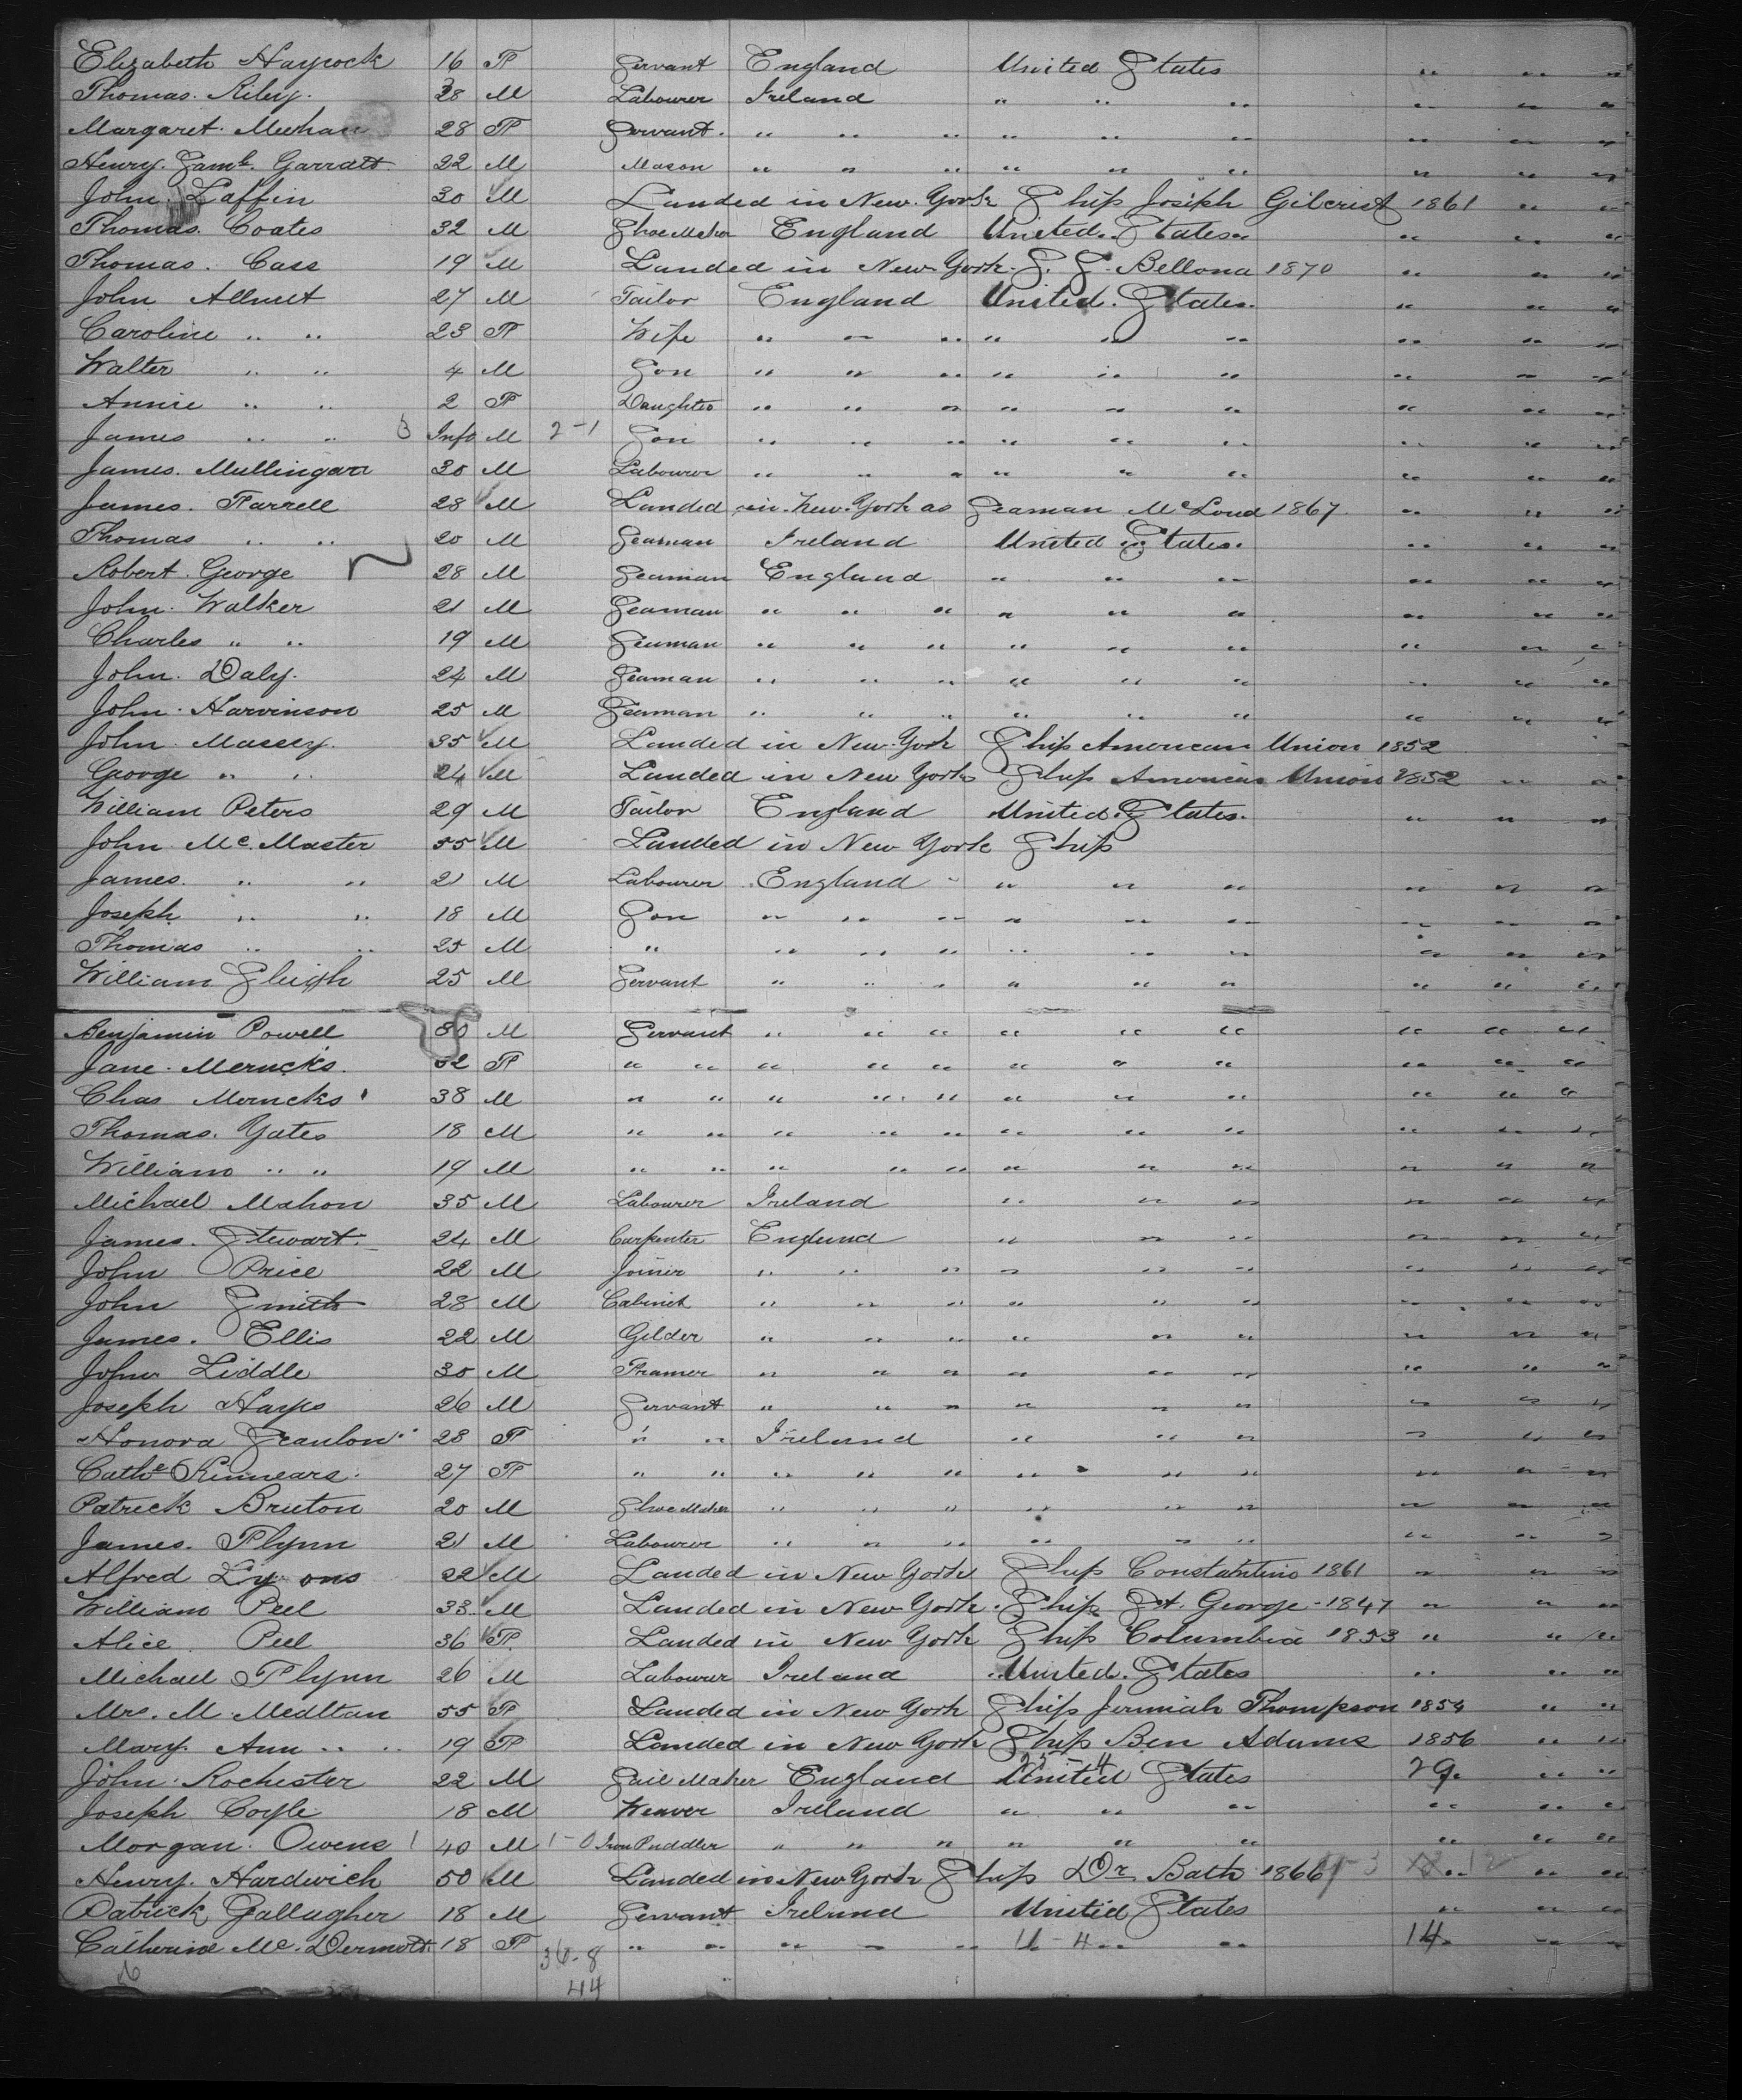 Elizabeth Haycock 16 F Servant England United States " " "
Thomas. Riley. 38 M Labourer Ireland " " " " " "
Margaret. Meehan 28 F Servant. " " " " " " " " "
Henry. Saml. Garratt 22 M Mason " " " " " " " " "
John. Laffin 30 M Landed in New. York Ship Joseph Gilcrist 1861 " "
Thomas. Coates 32 M Shoe Maker England United. States " " "
Thomas. Cass 19 M Landed in New York. S. S. Bellona 1870 " " "
John Allnut 27 M Tailor England United. States. " " "
Caroline " " 23 F Wife " " " " " " " " "
Walter " " 4 M Son " " " " " " " " "
Annie " " 2 F Daughter " " " " " " " " "
James " " 3 Inft M 2-1 Son " " " " " " " " "
James. Mullingar 30 M Labourer " " " " " " " " "
James. Farrell 28 M Landed in. New. York as Seaman McLoud 1867. " " "
Thomas " " 20 M Seaman Ireland United States. " " "
Robert. George 28 M Seaman England " " " " " "
John. Walker 21 M Seaman " " " " " " " " "
Charles " " 19 M Seaman " " " " " " " " "
John. Daly. 24 M Seaman " " " " " " " " "
John. Harvinson 25 M Seaman " " " " " " " " "
John. Massey. 35 M Landed in New. York Ship American Union 1852
George " " 24 M Landed in New York Ship American Union 1852 " "
William Peters 29 M Tailor England United. States. " " "
John Mc. Master 55 M Landed in New York Ship
James. " " 21 M Labourer England " " " " " "
Joseph " " 18 M Son " " " " " " " " "
Thomas " " 25 M " " " " " " " " " "
William Sleigh 25 M Servant " " " " " " " " "
Benjamin Powell 30 M Servant " " " " " " " " "
Jane. Merncks. 32 F " " " " " " " " " " "
Chas Merncks 38 M " " " " " " " " " " "
Thomas. Yates 18 M " " " " " " " " " " "
William " " 19 M " " " " " " " " " " "
Michael Mahon 35 M Labourer Ireland " " " " " "
James. Stewart. 24 M Carpenter England " " " " " "
John Price 22 M Joiner " " " " " " " " "
John Smith 28 M Cabinet " " " " " " " " "
James. Ellis 22 M Gilder " " " " " " " " "
John Liddle 30 M Framer " " " " " " " " "
Joseph Hays 26 M Servant " " " " " " " " "
Honora Scanlon 28 F " " Ireland " " " " " "
Cathe Kinnears. 27 F " " " " " " " " " " "
Patrick Bruton 20 M Shoe Maker " " " " " " " " "
James. Flynn 21 M Labourer " " " " " " " " "
Alfred Lyons 22 M Landed in New York Ship Constantine 1861 " " "
William Peel 33 M Landed in New York. Ship St. George - 1847 " " "
Alice. Peel 36 F Landed in New York Ship Columbia 1853 " " "
Michael Flynn 26 M Labourer Ireland United. States " " "
Mrs. M. Medltan 55 F Landed in New York Ship Jermiah Thompson 1854 " "
Mary. Ann " " 19 F Landed in New York Ship Ben Adams 1856 " "
John. Rochester 22 M Sail Maker England 25-4 United States 29. " "
Joseph Coyle 18 M Weaver Ireland " " " " " "
Morgan. Owens 1 40 M 1-0 Iron Puddler " " " " " " " " "
Henry. Hardwich 50 M Landed in New York Ship Dr Bath 1866 12 " "
Patrick Gallagher 18 M Servant Ireland United States " " "
Catherine Mc. Dermott. 18 F " " " " " 11-4 " " 14 " "
36-8
44